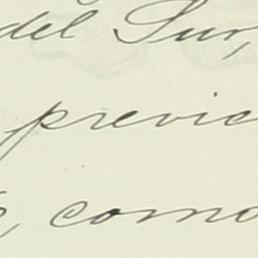 del Sur,
previa
como